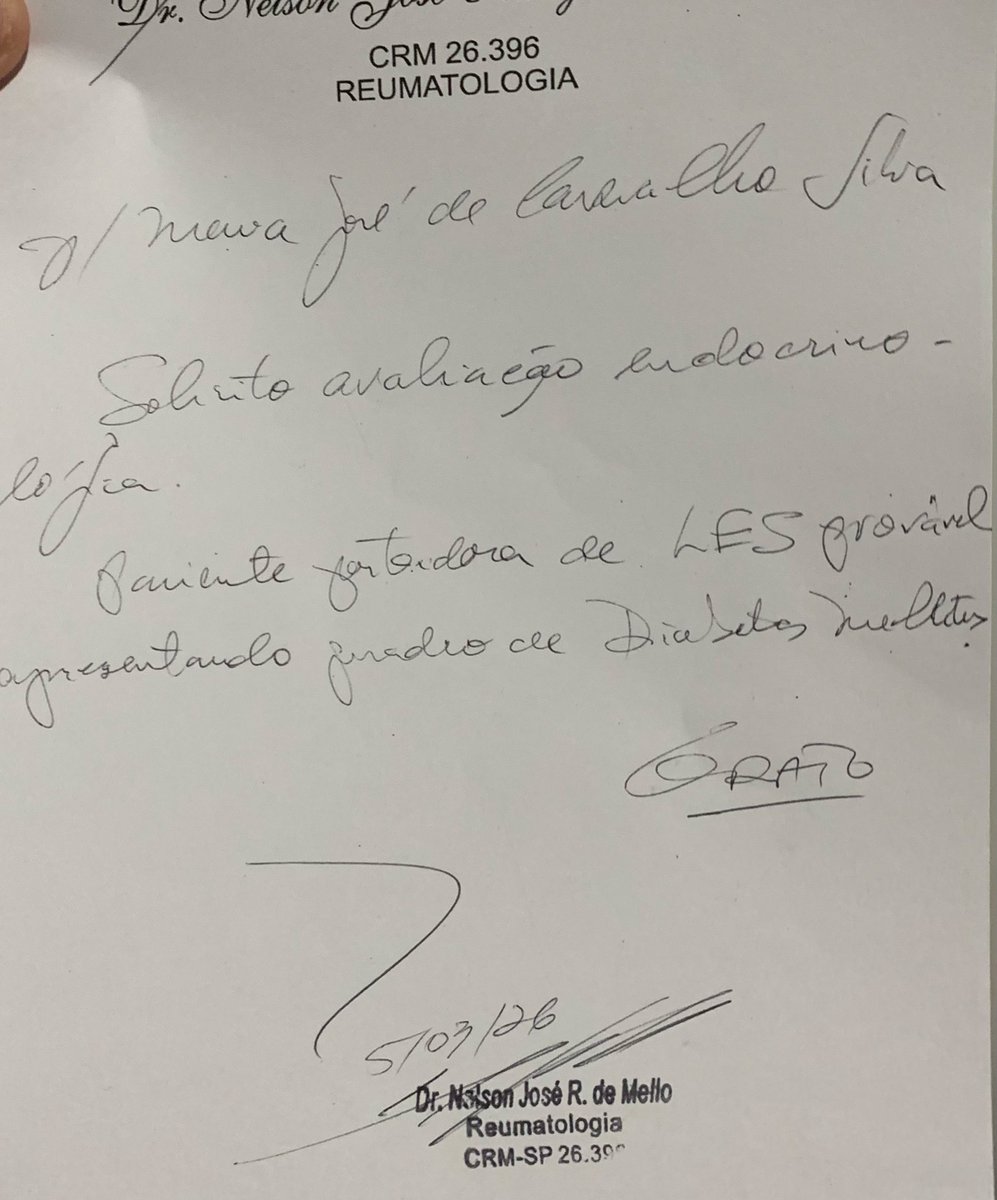 Dr. Nelson José
CRM 26.396
REUMATOLOGIA
p/ Maria José de Carvalho Silva
Solicito avaliação endocrino-
lógica.
Paciente portadora de LES provável
apresentando quadro de Diabetes Mellitus.
GRATO
5/03/26
Dr. Nelson José R. de Mello
Reumatologia
CRM-SP 26.39